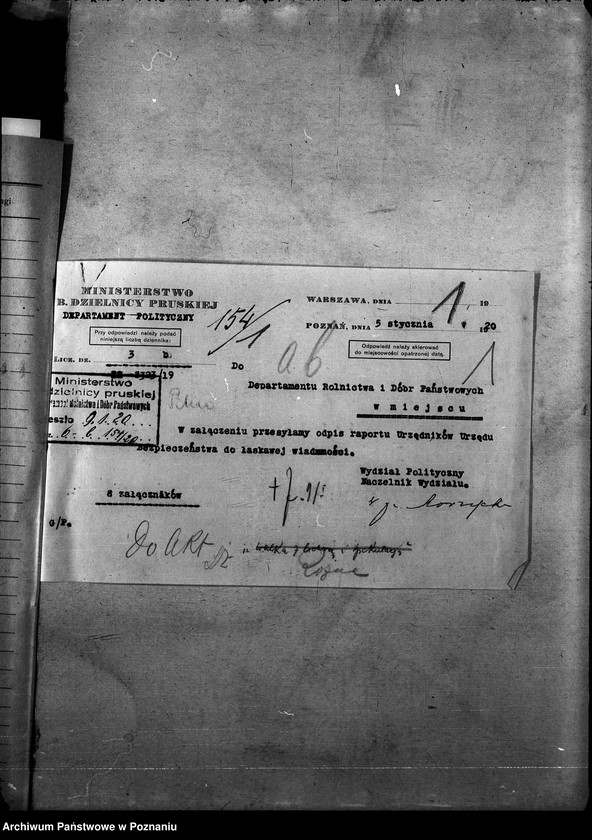 MINISTERSTWO
B. DZIELNICY PRUSKIEJ
DEPARTAMENT POLITYCZNY
Przy odpowiedzi należy podać
niniejszą liczbę dziennika:
LICZ. DZ. 3 b.
/19
154/1
WARSZAWA, DNIA 19
POZNAŃ, DNIA 5 stycznia 1920
Odpowiedź należy skierować
do miejscowości opatrzonej datą.
1
1
Do
ab
Departamentu Rolnictwa i Dóbr Państwowych
w miejscu
Ministerstwo
dzielnicy pruskiej
Rolnictwa i Dóbr Państwowych
eszło 9.1.20
a.b. 154/20
W załączeniu przesyłamy odpis raportu Urzędników Urzędu
Bezpieczeństwa do łaskawej wiadomości.
Wydział Polityczny
Naczelnik Wydziału.
8 załączników
G/P.
Do Akt
Różne
Archiwum Państwowe w Poznaniu